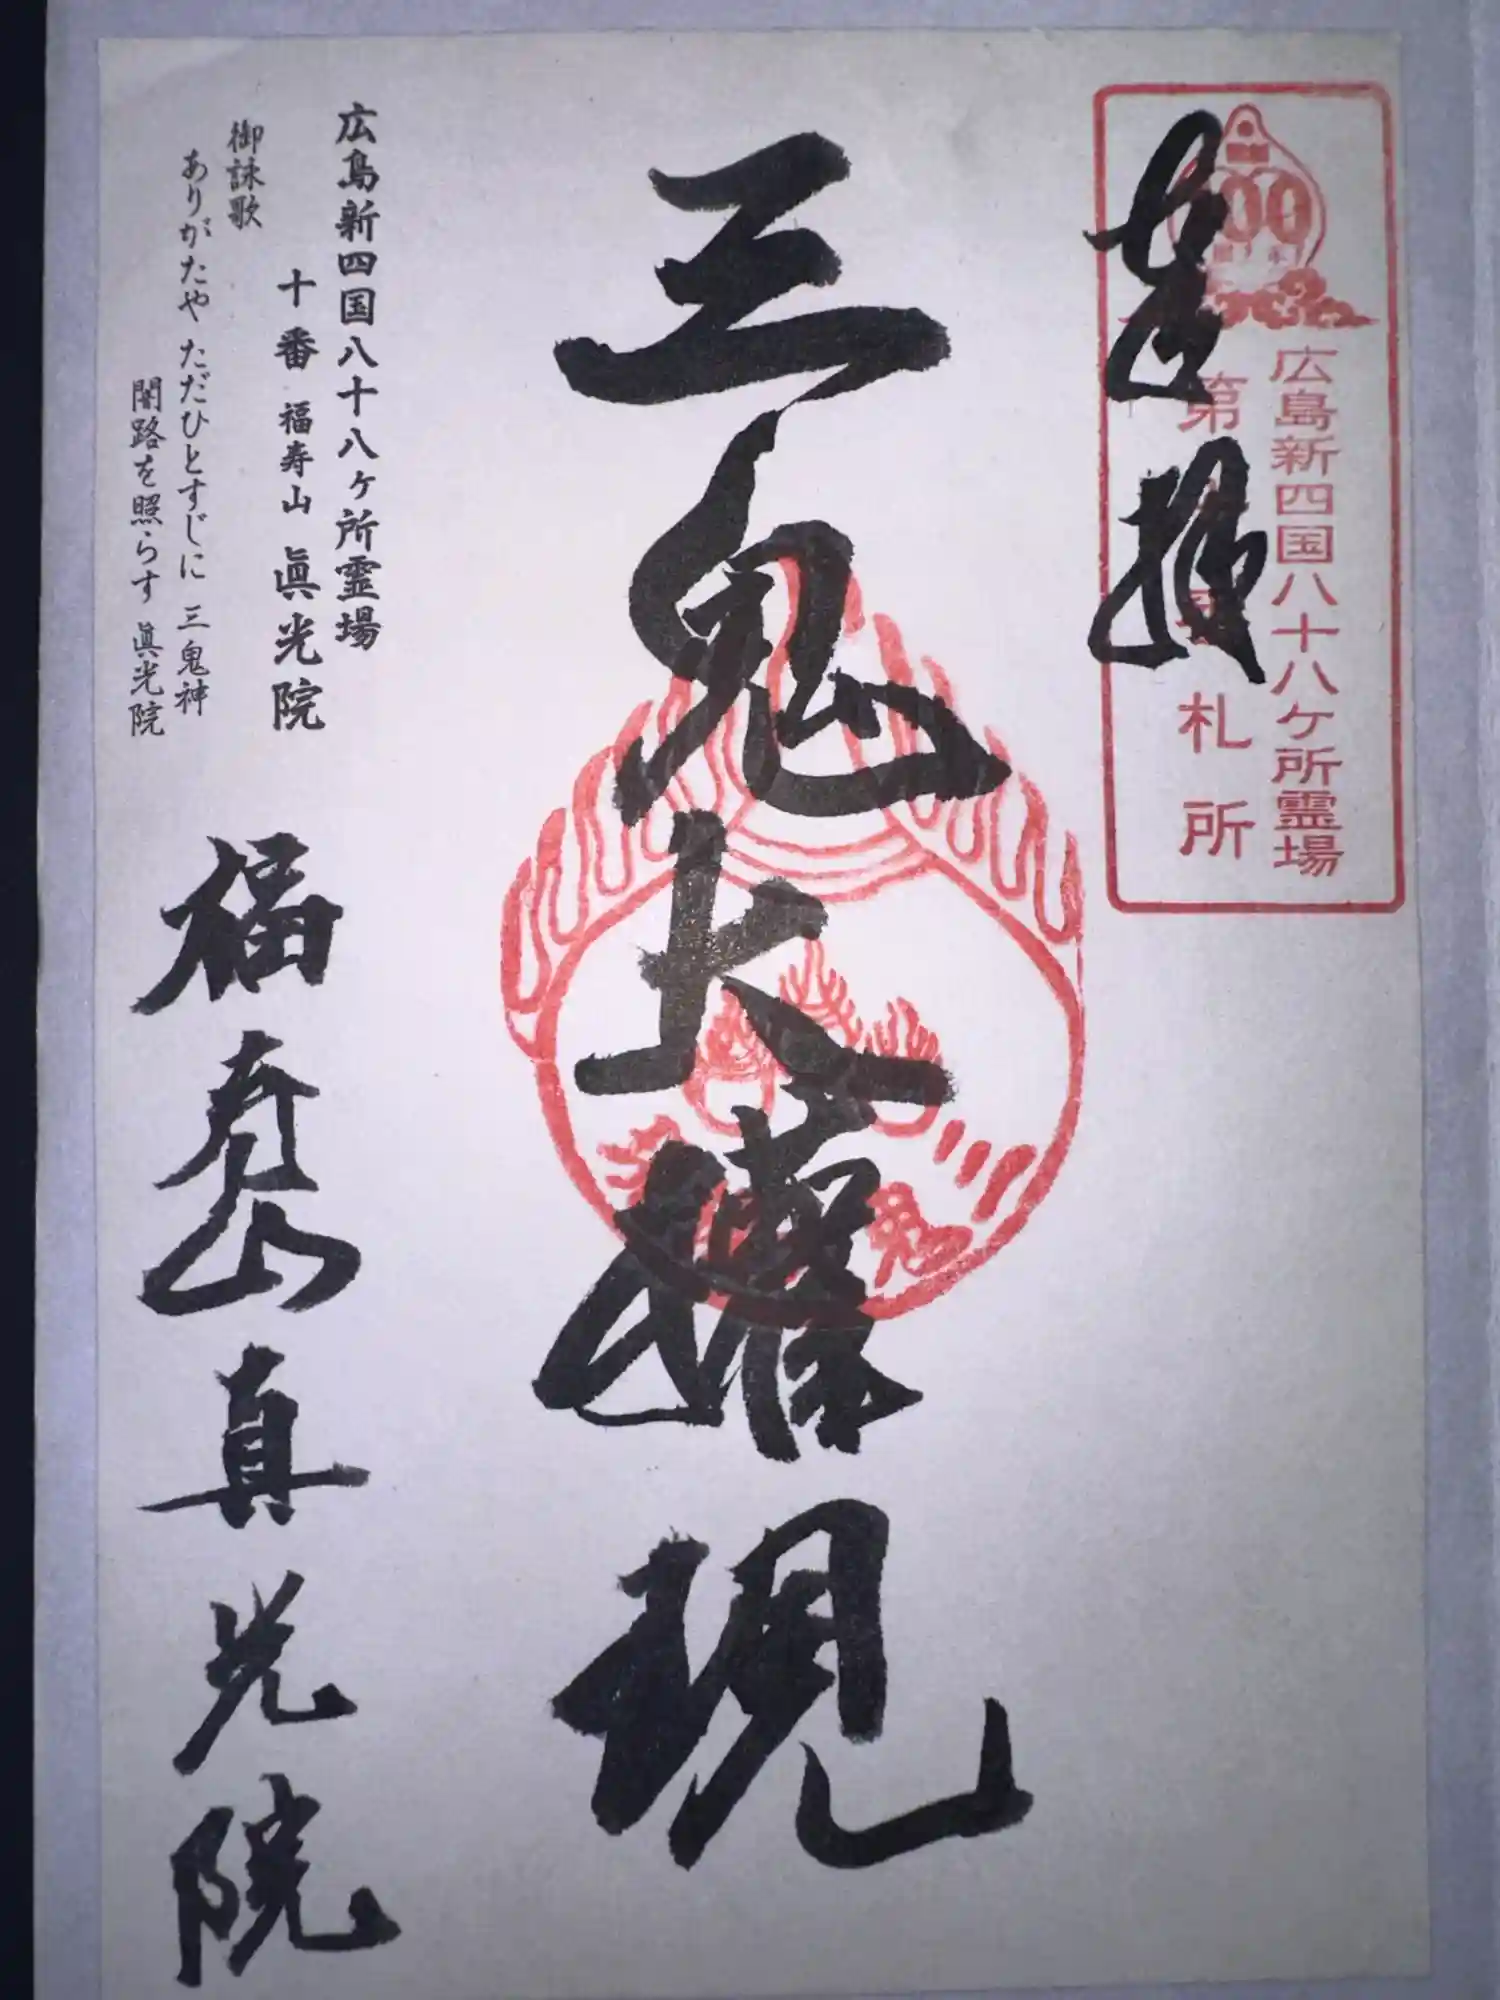 奉拝
広島新四国八十八ヶ所霊場
第十番札所
三鬼大権現
広島新四国八十八ヶ所霊場
十番 福寿山 眞光院
御詠歌
ありがたや ただひとすじに 三鬼神
闇路を照らす 眞光院
福寿山真光院